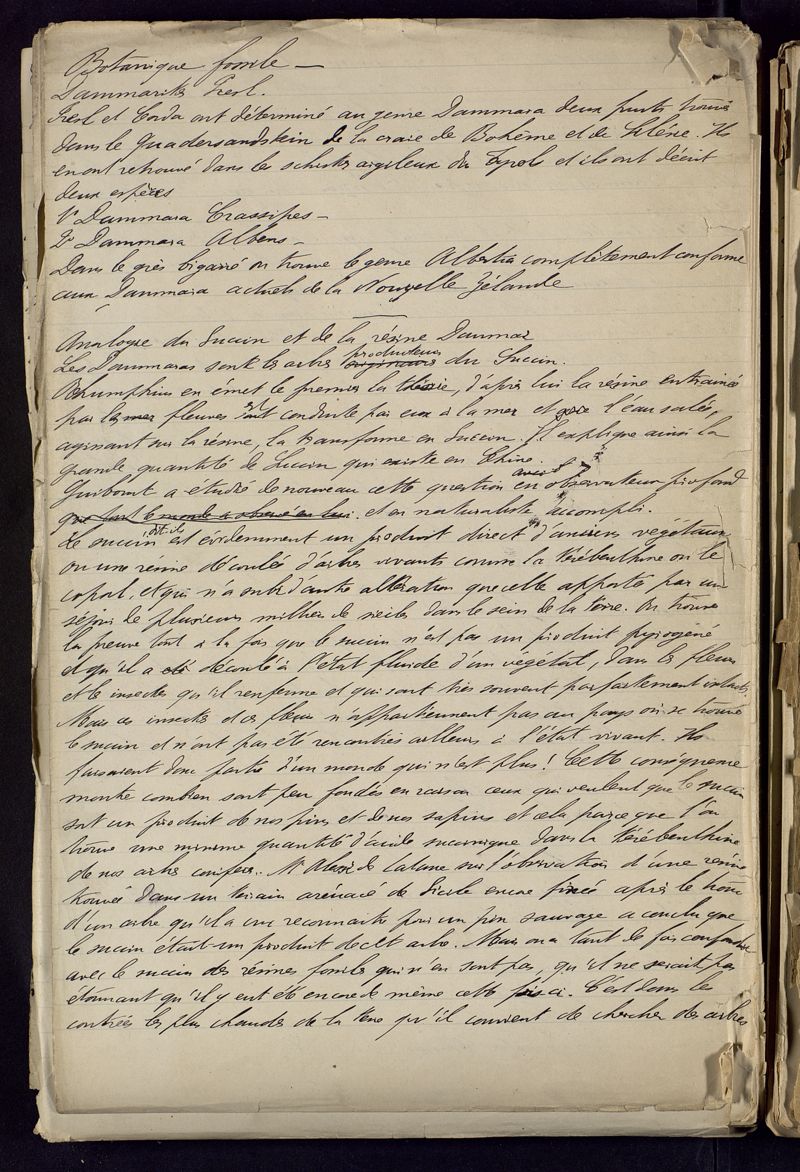 Botanique fossile —
Dammarites Presl.
Presl et Corda ont déterminé au genre Dammara deux fruits trouvés
dans le Quadersandstein de la craie de Bohême et de Silésie. Ils
en ont retrouvé dans les schistes argileux du Tyrol et ils ont décrit
deux espèces
1º Dammara Crassipes —
2º Dammara Albens —
Dans le grès bigarré on trouve le genre Albertia complètement conforme
aux Dammara actuels de la Nouvelle Zélande
Analogie du Succin et de la résine Dammar
Les Dammaras sont les arbres producteurs du Succin.
Rhumphius en émet le premier la théorie, d'après lui la résine entrainée
par les fleuves est conduite par eux à la mer et que l'eau salée,
agissant sur la résine, la transforme en Succin. Il explique ainsi la
grande quantité de Succin qui existe en Chine.
Guibourt a étudié de nouveau cette question en observateur profond
et en naturaliste accompli.
Le succin, dit-il, est évidemment un produit direct d'anciens végétaux
ou une résine découlée d'arbres vivants comme la térébenthine ou le
copal, et qui n'a subi d'autre altération que celle apportée par un
séjour de plusieurs milliers de siècles dans le sein de la terre. On trouve
la preuve tout à la fois que le succin n'est pas un produit pyrogéné
et qu'il a été découlé à l'état fluide d'un végétal, dans les fleurs
et les insectes qu'il renferme et qui sont très souvent parfaitement intacts.
Mais ces insectes et ces fleurs n'appartiennent pas au pays où se trouve
le succin et n'ont pas été rencontrés ailleurs à l'état vivant. Ils
faisaient donc partie d'un monde qui n'est plus! Cette conséquence
montre combien sont peu fondés en raison ceux qui veulent que le succin
soit un produit de nos pins et de nos sapins et cela parce que l'on
trouve une minime quantité d'acide succinique dans la térébenthine
de nos arbres conifères. Mr Alexis de sur l'observation d'une résine
trouvée dans un terrain arénacé de Sicile encore fixée après le tronc
d'un arbre qu'il a cru reconnaitre pour un pin sauvage a conclu que
le succin était un produit de cet arbre. Mais on a tant de fois confondu
avec le succin des résines fossiles qui n'en sont pas, qu'il ne serait pas
étonnant qu'il y eut été encore de même cette fois ci. C'est dans les
contrées les plus chaudes de la terre qu'il convient de chercher des arbres